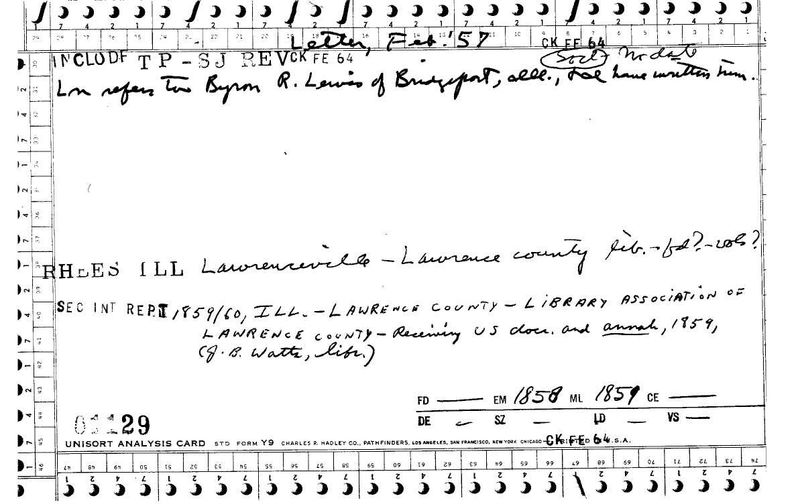 Letter, Feb. '57
CK FE 64
INCLUDE TP-SJ REV CK FE 64 No date
Ln refers to Byron R. Lewis of Bridgeport, Ill., & have written him.
RHEES ILL Lawrenceville – Lawrence county lib. – fd? – vols?
SEC INT REPT 1859/60, ILL. – LAWRENCE COUNTY – LIBRARY ASSOCIATION OF
LAWRENCE COUNTY – Receiving US docs. and annals, 1859,
(J. B. Watts, libr.)
FD — EM 1858 ML 1859 CE —
DE – SZ – LD – VS –
01129
UNISORT ANALYSIS CARD STD FORM Y9 CHARLES R. HADLEY CO., PATHFINDERS, LOS ANGELES, SAN FRANCISCO, NEW YORK CHICAGO CK FE 64 U.S.A.